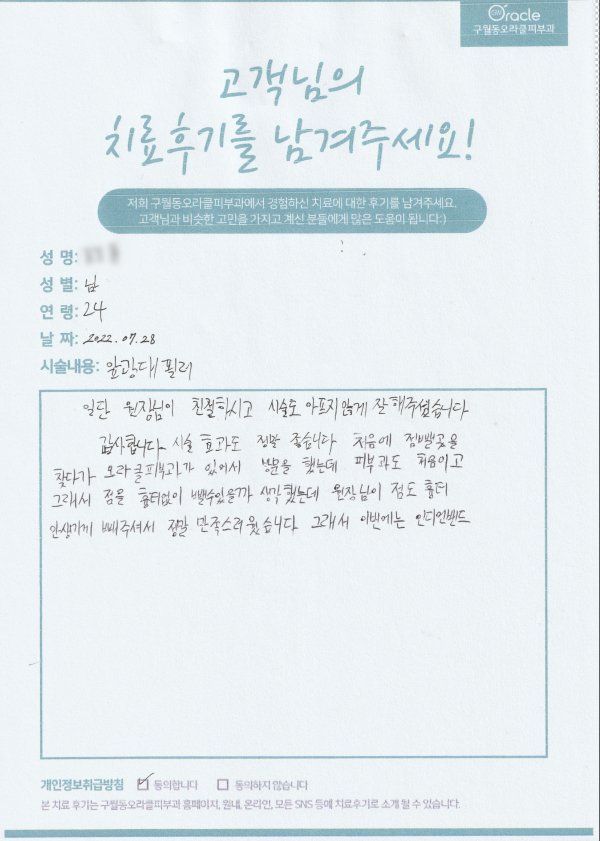 Oracle
구월동오라클피부과
고객님의
치료후기를 남겨주세요!
저희 구월동오라클피부과에서 경험하신 치료에 대한 후기를 남겨주세요.
고객님과 비슷한 고민을 가지고 계신 분들에게 많은 도움이 됩니다:)
성 명:
성 별: 남
연 령: 24
날 짜: 2022.07.28
시술내용: 앞광대 필러
일단 원장님이 친절하시고 시술도 아프지않게 잘해주셨습니다
감사합니다 시술 효과도 정말 좋습니다 처음에 점뺄곳을
찾다가 오라클피부과가 있어서 방문을 했는데 피부과도 처음이고
그래서 점을 흉터없이 뺄수있을까 생각했는데 원장님이 점도 흉터
안생기게 빼주셔서 정말 만족스러웠습니다 그래서 이번에는 인디언밴드
개인정보취급방침 동의합니다 동의하지 않습니다
본 치료 후기는 구월동오라클피부과 홈페이지, 원내, 온라인, 모든 SNS 등에 치료후기로 소개 될 수 있습니다.